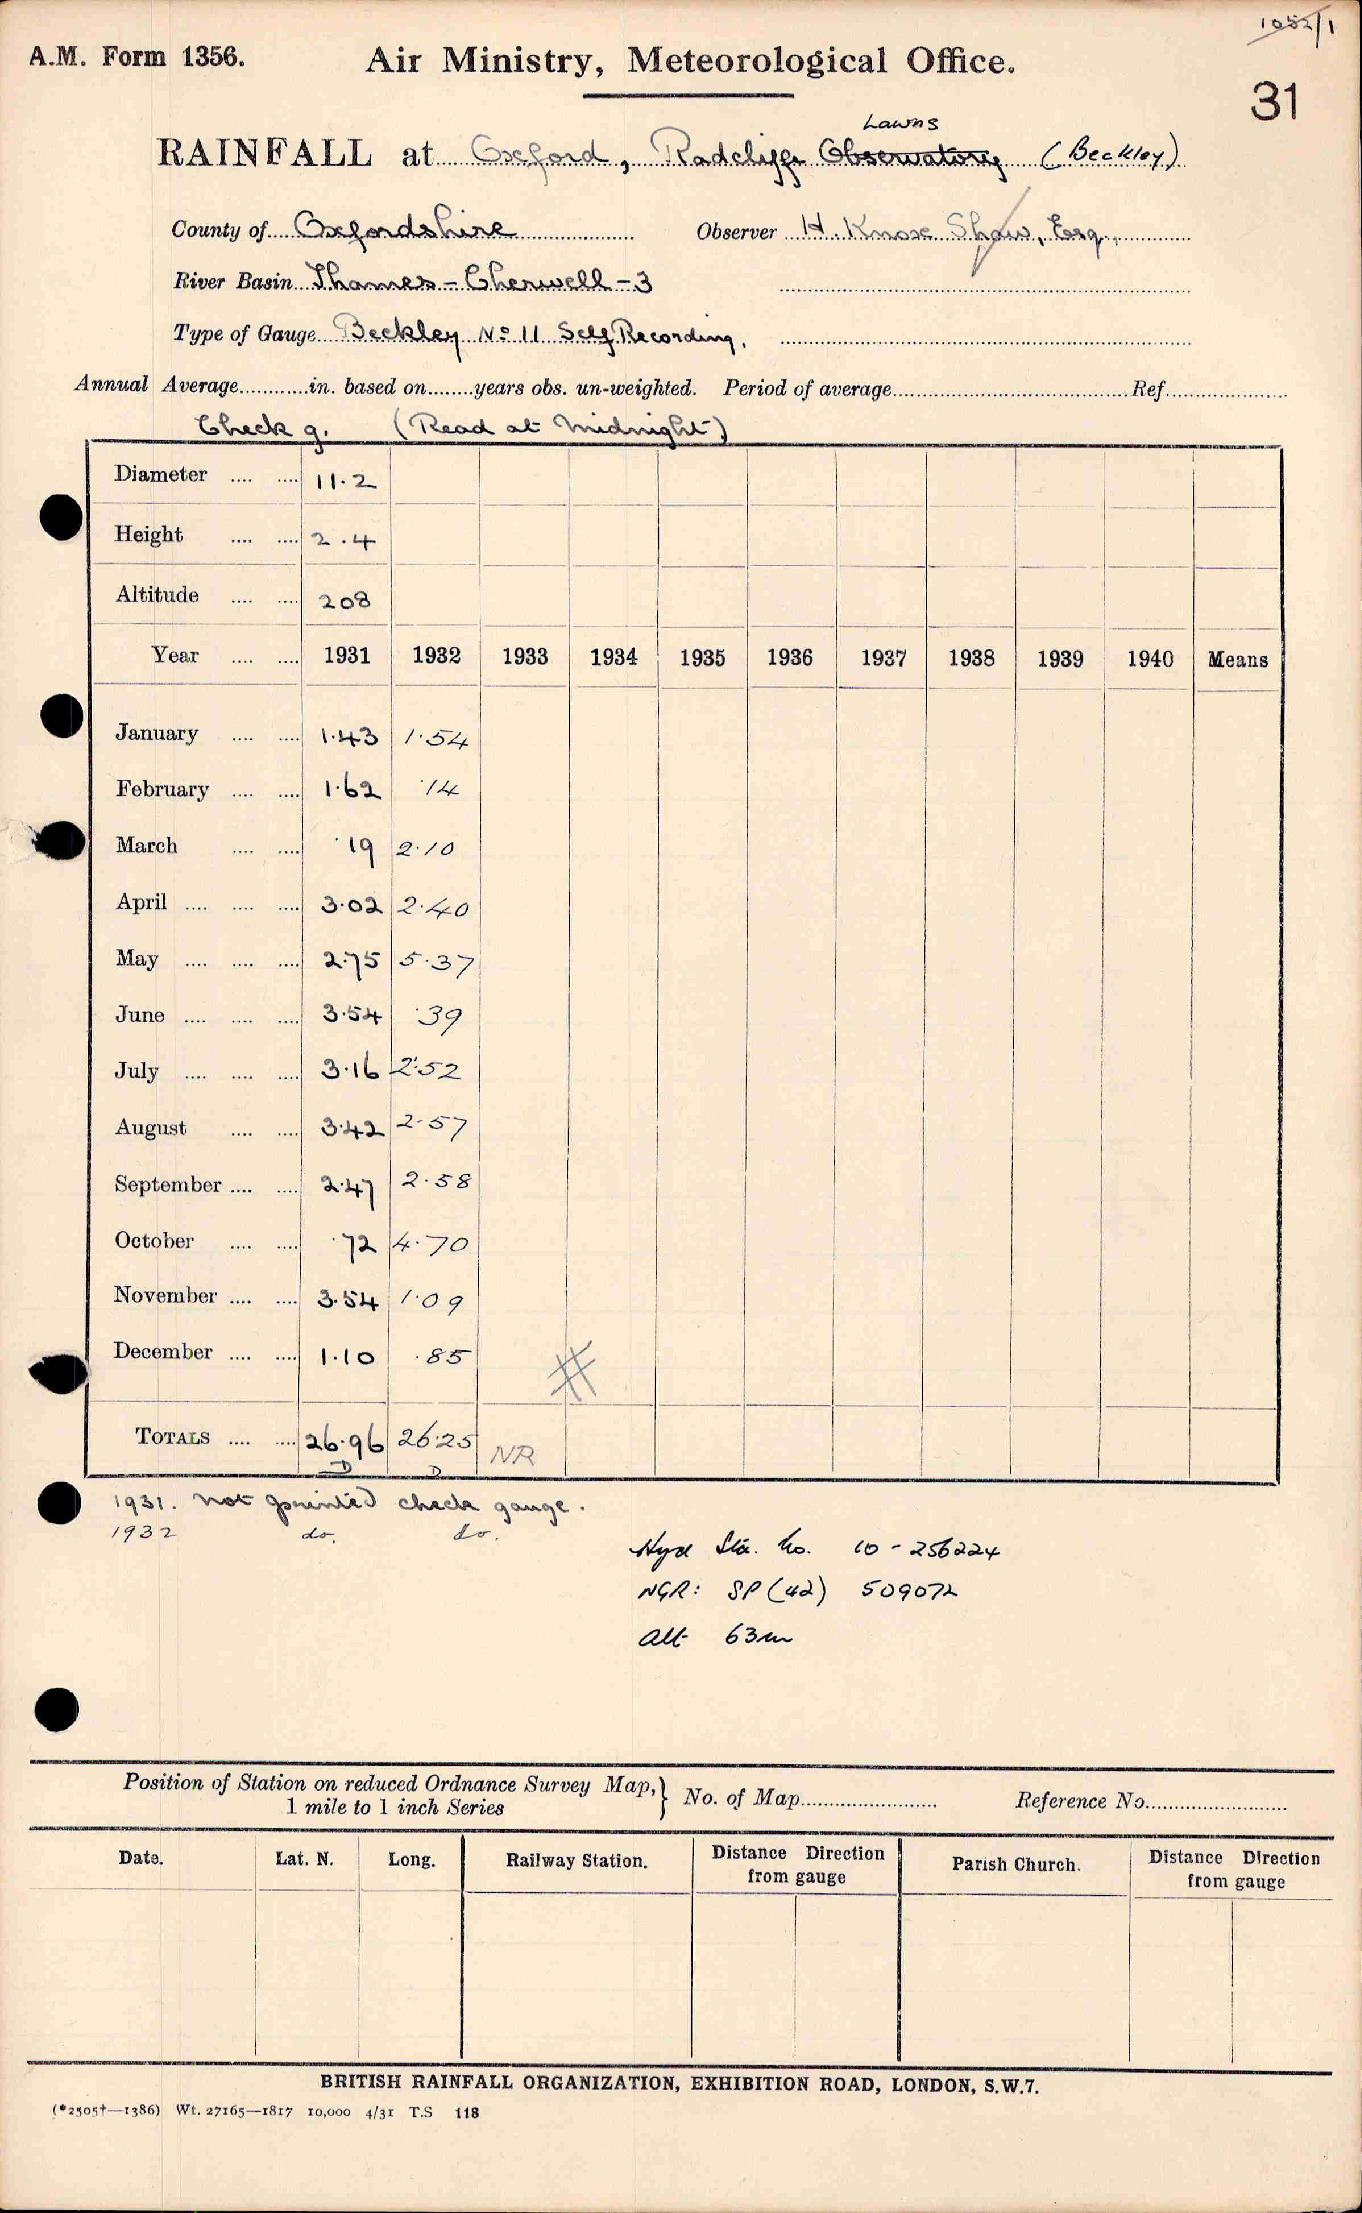 1052/1
A.M. Form 1356. Air Ministry, Meteorological Office.
31
Lawns
RAINFALL at Oxford, Radcliffe Observatory (Beckley)
County of Oxfordshire Observer H. Knox Shaw, Esq.,
River Basin Thames - Cherwell - 3
Type of Gauge Beckley No 11 Self Recording.
Annual Average............in. based on........years obs. un-weighted. Period of average.................................Ref.................
Check g. (Read at Midnight)
Diameter .... .... 11.2
Height .... .... 2.4
Altitude .... .... 208
Year .... .... 1931 1932 1933 1934 1935 1936 1937 1938 1939 1940 Means
January .... .... 1.43 1.54
February .... .... 1.62 .14
March .... .... .19 2.10
April .... .... .... 3.02 2.40
May .... .... .... 2.75 5.37
June .... .... .... 3.54 .39
July .... .... .... 3.16 2.52
August .... .... 3.42 2.57
September .... .... 2.47 2.58
October .... .... .72 4.70
November .... .... 3.54 1.09
December .... .... 1.10 .85
#
TOTALS .... .... 26.96 26.25 NR
D D
1931. not printed check gauge.
1932 do. do.
Hyd Sta. No. 10 - 256224
NGR: SP (42) 509072
Alt 63m
Position of Station on reduced Ordnance Survey Map, } No. of Map........................ Reference No.........................
1 mile to 1 inch Series
Date. Lat. N. Long. Railway Station. Distance Direction from gauge Parish Church. Distance Direction from gauge
BRITISH RAINFALL ORGANIZATION, EXHIBITION ROAD, LONDON, S.W.7.
(*2505†—1386) Wt. 27165—1817 10,000 4/31 T.S 118